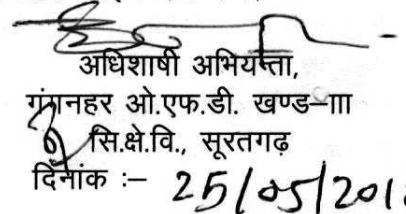 अधिशाषी अभियन्ता,
गंगनहर ओ.एफ.डी. खण्ड–III
सि.क्षे.वि., सूरतगढ़
दिनांक :– 25/05/201